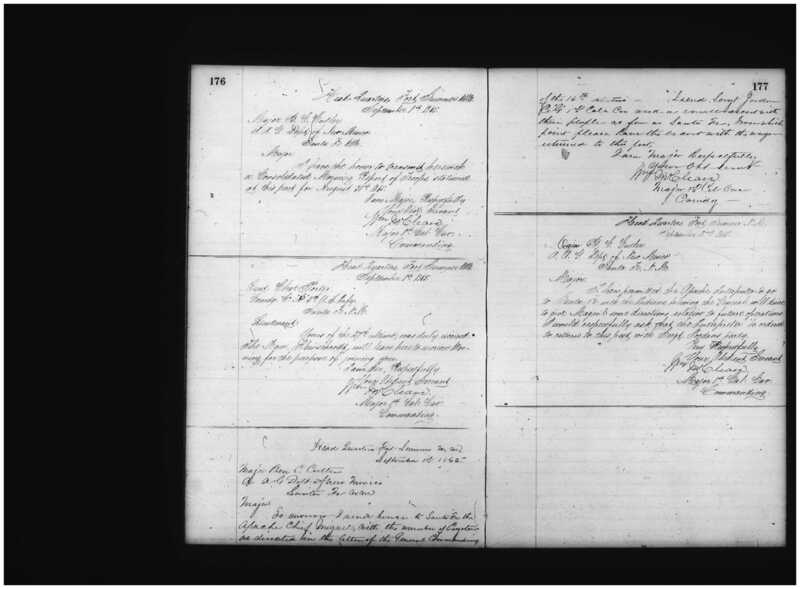 176
Head Quarters Fort Sumner N.M.
September 1st 1865.
Major
A. A. G Dept of New Mexico
Santa Fe N.M.
Major
I have the honor to transmit herewith
a Consolidated Morning Report of Troops stationed
at this post for August 31st 1865.
I am Major, Respectfully
Your Obdt Servant
Wm McCleave
Major 1st Cal. Cav.
Commanding.
Head Quarters Fort Sumner N.M.
September 1st 1865
Lieut Chas
Comdg Co 5th U.S. Infy
Santa Fe N.M.
Lieutenant
Yours of the 27th was duly received
The Men will leave here to-morrow
for the purpose of joining you.
I am Sir, Respectfully
Your Obdient Servant
Wm McCleave
Major 1st Cal. Cav.
Commanding.
Head Quarters Fort Sumner N.M.
September 1st 1865
Major Ben C Cutler
A. A. G Dept of New Mexico
Santa Fe
Major
To morrow I send hence to Santa Fe the
Apache Chief with the number of
as directed in the letter of the General Commanding
177
of the 16th
1st Cala Cav and as
these people as far as Santa Fe, from which
point please have the with the wagon
returned to this post.
I am Major Respectfully
Your Obt Servt
Wm McCleave
Major 1st Cal Cav
Comdg
Head Quarters Fort Sumner N.M.
September 1st 1865.
A. A. G Dept of New Mexico
Santa Fe, N.M.
Major
I have permitted the Apache Interpreter to go
to Santa Fe with the Indians believing the General will desire
to give some directions relative to future operations
I would respectfully ask that the Interpreter is ordered
to return to this post with party.
Very Respectfully
Your Obdient Servant
Wm McCleave
Major 1st Cal. Cav.
Commanding.